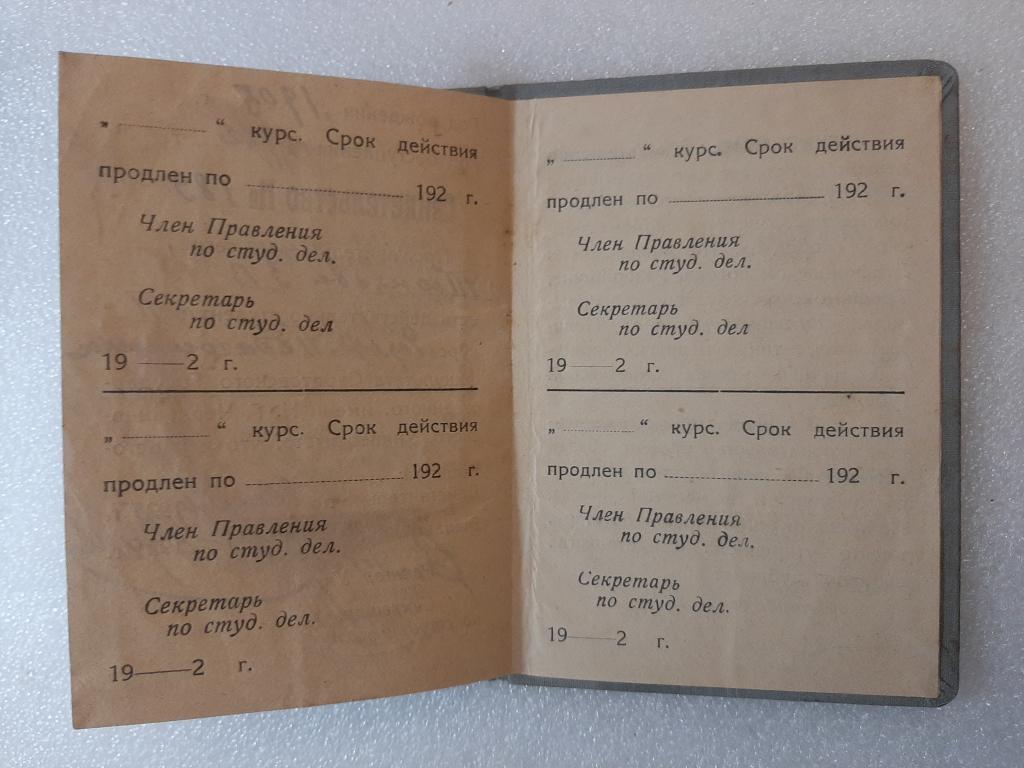 „ “ курс. Срок действия
продлен по 192 г.
Член Правления
по студ. дел.
Секретарь
по студ. дел
19 — 2 г.
„ “ курс. Срок действия
продлен по 192 г.
Член Правления
по студ. дел.
Секретарь
по студ. дел.
19 — 2 г.
„ “ курс. Срок действия
продлен по 192 г.
Член Правления
по студ. дел.
Секретарь
по студ. дел
19 — 2 г.
„ “ курс. Срок действия
продлен по 192 г.
Член Правления
по студ. дел.
Секретарь
по студ. дел.
19 — 2 г.